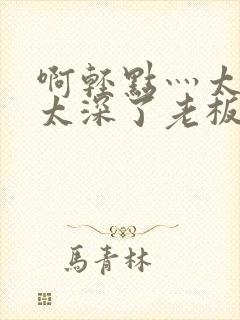 啊轻點灬太
太深了老板
馬青林